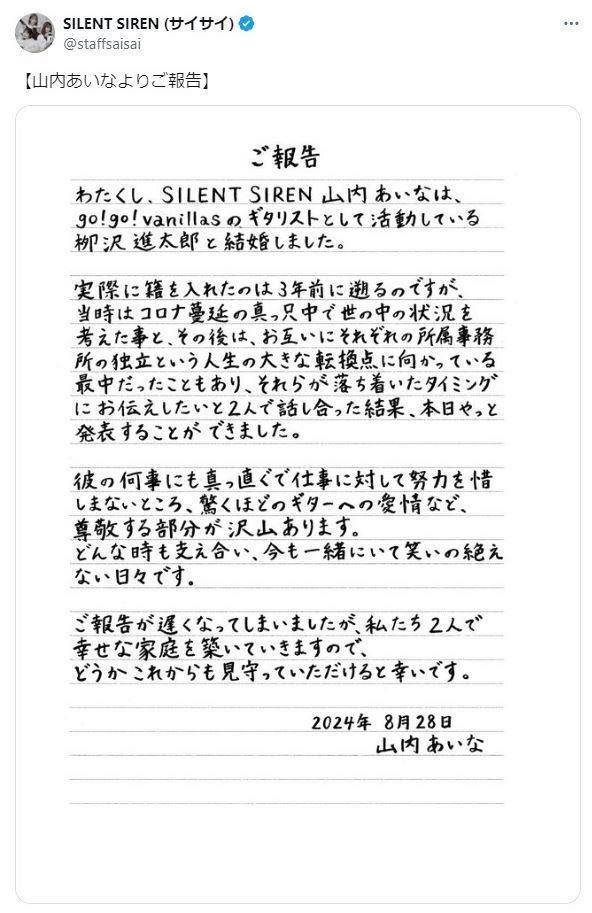 SILENT SIREN (サイサイ)
@staffsaisai
【山内あいなよりご報告】
ご報告
わたくし、SILENT SIREN 山内 あいなは、
go!go!vanillasの、ギタリストとして活動している
栁沢 進太郎と結婚しました。
実際に籍を入れたのは3年前に遡るのですが、
当時はコロナ蔓延の真っ只中で世の中の状況を
考えた事と、その後は、お互いにそれぞれの所属事務
所の独立という人生の大きな転換点に向かっている
最中だったこともあり、それらが落ち着いたタイミング
にお伝えしたいと2人で話し合った結果、本日やっと
発表することができました。
彼の何事にも真っ直ぐで仕事に対して努力を惜
しまないところ、驚くほどのギターへの愛情など、
尊敬する部分が沢山あります。
どんな時も支え合い、今も一緒にいて笑いの絶え
ない日々です。
ご報告が遅くなってしまいましたが、私たち2人で
幸せな家庭を築いていきますので、
どうかこれからも見守っていただけると幸いです。
2024年 8月28日
山内 あいな